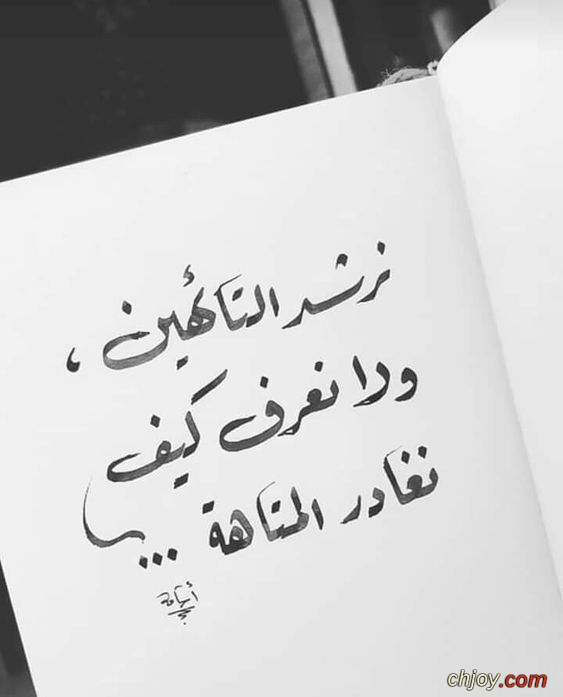 نرشد التائهين ،
ولا نعرف كيف
نغادر المتاهة ...!
chjoy.com